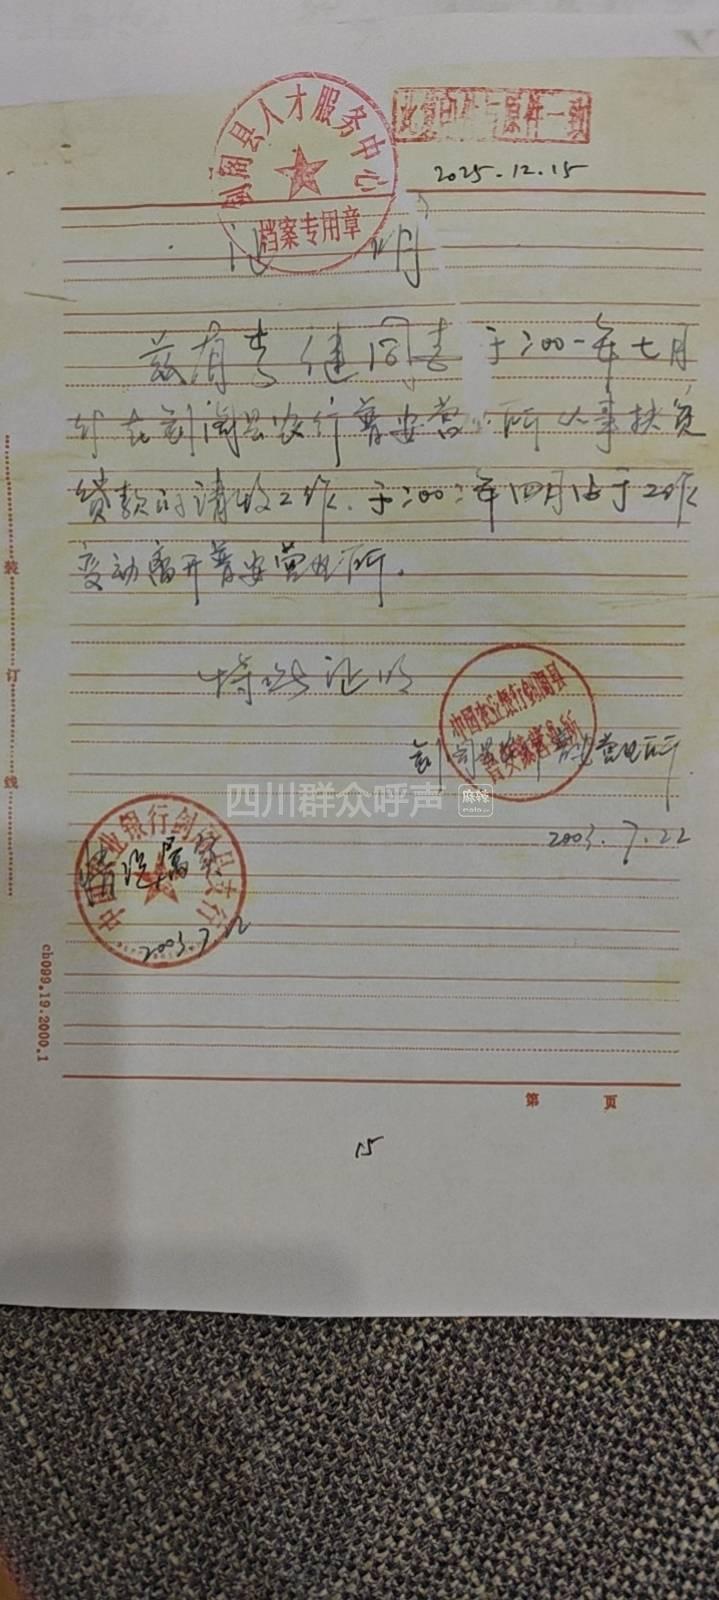 剑阁县人才服务中心
档案专用章
此复印件与原件一致
2025.12.15
证明
兹有 健同志于二00一年七月
在剑阁县农行普安营业所从事扶贫
贷款的清收工作.于二00二年四月由于工作
变动离开普安营业所.
特此证明
中国农业银行剑阁县
普安营业所
剑阁 普安营业所
2003.7.22
四川群众呼声
麻辣
中国农业银行剑阁县支行
情况属实
2003.7.22
装订线
cb099.19.2000.1
第 页
15